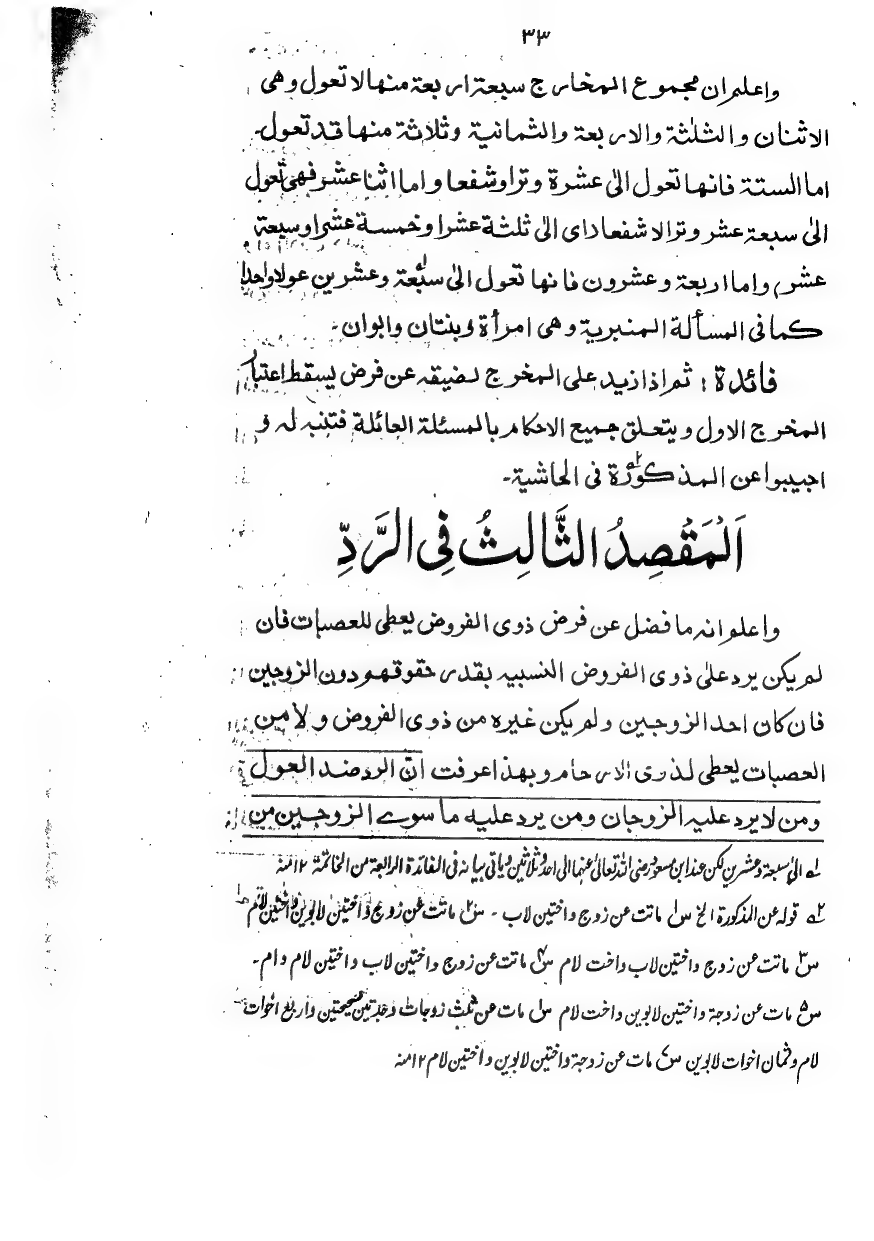 ٣٣
واعلم ان مجموع المخارج سبعة اربعة منها لا تعول وهى
الاثنان والثلثة والاربعة والثمانية وثلاثة منها قد تعول۔
اما الستة فانها تعول الى عشرة وترا وشفعا واما اثنا عشر فهى تعول
الى سبعة عشر وترا لا شفعا داى الى ثلثة عشرا وخمسة عشرا وسبعة
عشر، واما اربعة وعشرون فانها تعول الى سبعة وعشرين عولا واحدا
كما فى المسألة المنبرية وهى امرأة وبنتان وابوان۔
فائدة: ثم اذا زيد على المخرج لضيقه عن فرض يسقط اعتبار
المخرج الاول ويتعلق جميع الاحكام بالمسئلة العائلة فتنبه له و
اجيبوا عن المذكورة فى الحاشية۔
اَلْمَقْصِدُ الثَّالِثُ فِى الرَّدِّ
واعلم انه ما فضل عن فرض ذوى الفروض يعطى للعصبات فان
لم يكن يرد على ذوى الفروض النسبيه بقدر حقوقهم دون الزوجين
فان كان احد الزوجين ولم يكن غيره من ذوى الفروض ولا من
العصبات يعطى لذوى الارحام وبهذا عرفت ان الرد ضد العول
ومن لا يرد عليه الزوجان ومن يرد عليه ما سوے الزوجين من
١ه الى سبعة وعشرين لكن عند ابن مسعود رضى الله تعالى عنهما الى احد وثلاثين وياتى بيانه فى الفائدة الرابعة من الخاتمة ١٢ منه
٢ه قوله عن المذكورة الخ س١ ماتت عن زوج واختين لاب - س٢ ماتت عن زوج واختين لابوين واختين لام
س٣ ماتت عن زوج واختين لاب واخت لام س٤ ماتت عن زوج واختين لاب واختين لام وام۔
س٥ مات عن زوجة واختين لابوين واخت لام س٦ مات عن ثلث زوجات وجدتين صحيحتين واربع اخوات
لام وثمان اخوات لابوين س٧ مات عن زوجة واختين لابوين واختين لام ١٢ منه